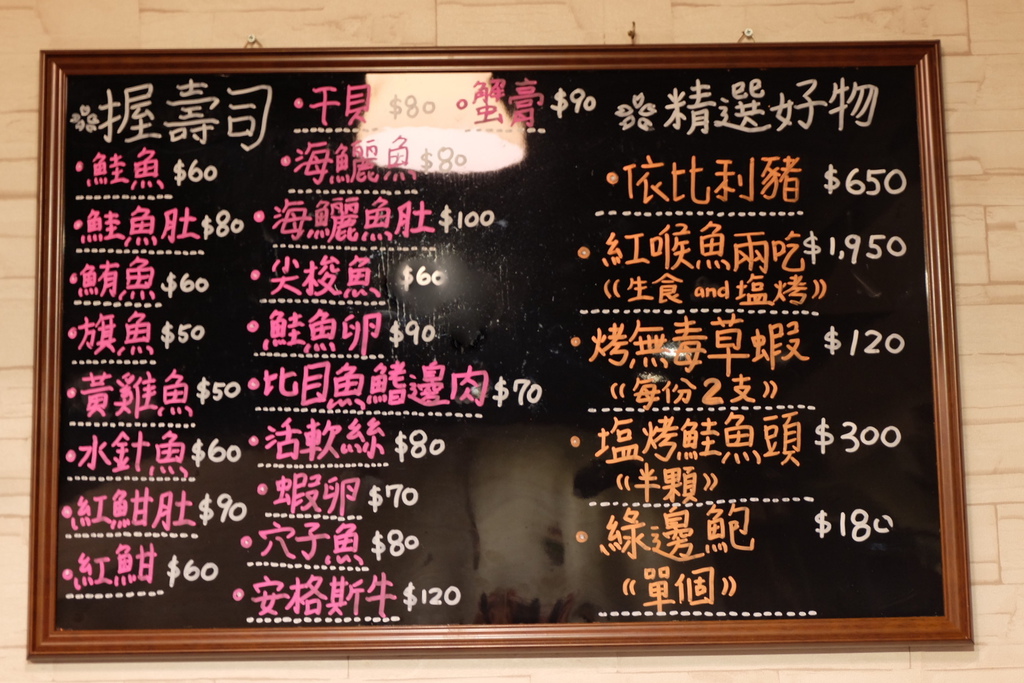 握壽司
鮭魚 $60
鮭魚肚 $80
鮪魚 $60
旗魚 $50
黃雞魚 $50
水針魚 $60
紅魽肚 $90
紅魽 $60
干貝 $80
海鱺魚 $80
海鱺魚肚 $100
尖梭魚 $60
鮭魚卵 $90
比目魚鰭邊肉 $70
活軟絲 $80
蝦卵 $70
穴子魚 $80
安格斯牛 $120
蟹膏 $90
精選好物
依比利豬 $650
紅喉魚兩吃 $1,950
《生食 and 塩烤》
烤無毒草蝦 $120
《每份2支》
塩烤鮭魚頭 $300
《半顆》
綠邊鮑 $180
《單個》